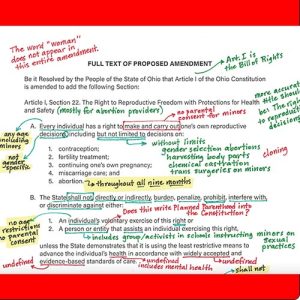 The word "woman"
does not appear in
this entire amendment.
FULL TEXT OF PROPOSED AMENDMENT
Art. I is
the Bill of Rights
Be it Resolved by the People of the State of Ohio that Article I of the Ohio Constitution
is amended to add the following Section:
more accurate
title should
be: The right
to reproductive
decisions
Article I, Section 22. The Right to Reproductive Freedom with Protections for Health
and Safety (mostly for abortion providers)
no parental
consent for
minors
A. Every individual has a right to make and carry out one's own reproductive
decisions, including but not limited to decisions on:
any age
including
minors
not
gender-
specific
1. contraception;
2. fertility treatment;
3. continuing one's own pregnancy;
4. miscarriage care; and
5. abortion. throughout all nine months
without limits
gender selection abortions
harvesting body parts
chemical castration
trans surgeries on minors
cloning
B. The State shall not, directly or indirectly, burden, penalize, prohibit, interfere with,
or discriminate against either:
Does this write Planned Parenthood into
the Constitution?
no age
restrictions
no parental
consent
1. An individual's voluntary exercise of this right or
2. A person or entity that assists an individual exercising this right,
includes group/activists in schools instructing minors on
sexual
practices
unless the State demonstrates that it is using the least restrictive means to
advance the individual's health in accordance with widely accepted and
evidence-based standards of care.
undefined
undefined
includes mental health
undefined
shall not